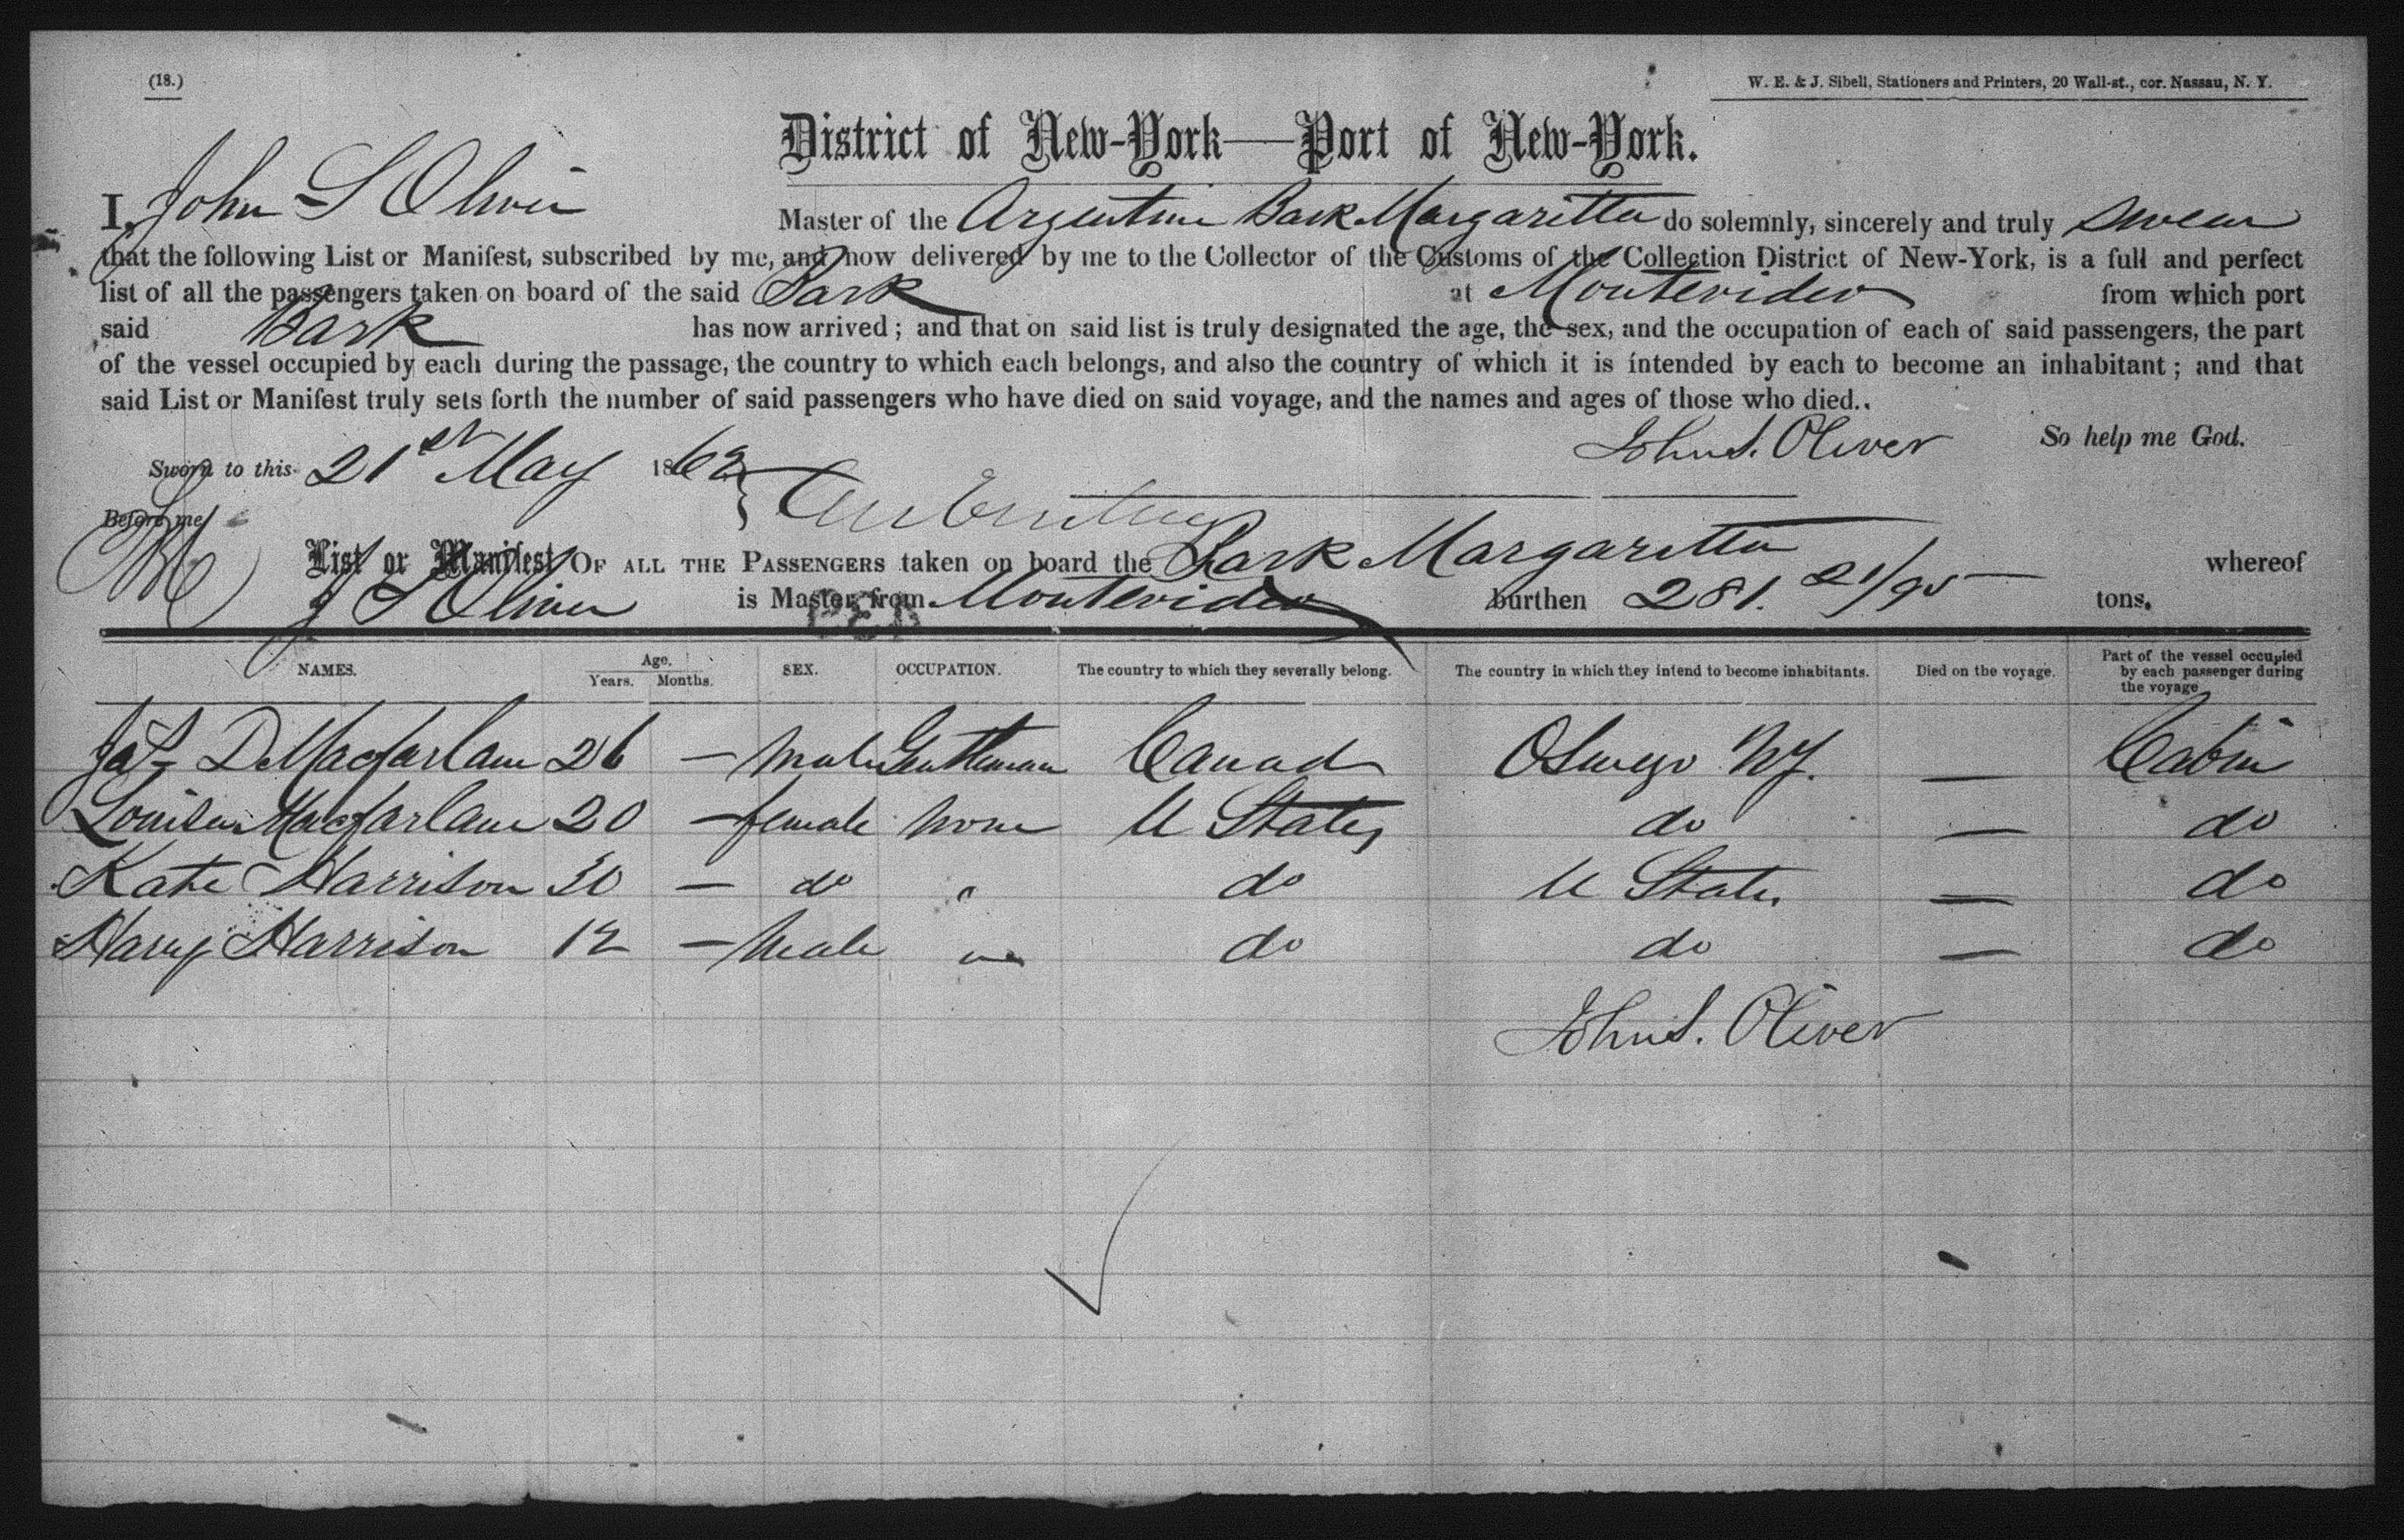 (18.)
W. E. & J. Sibell, Stationers and Printers, 20 Wall-st., cor. Nassau, N. Y.
District of New-York—Port of New-York.
I, John S Oliver Master of the Argentine Bark Margaritta do solemnly, sincerely and truly swear
that the following List or Manifest, subscribed by me, and now delivered by me to the Collector of the Customs of the Collection District of New-York, is a full and perfect
list of all the passengers taken on board of the said Bark at Montevideo from which port
said Bark has now arrived; and that on said list is truly designated the age, the sex, and the occupation of each of said passengers, the part
of the vessel occupied by each during the passage, the country to which each belongs, and also the country of which it is intended by each to become an inhabitant; and that
said List or Manifest truly sets forth the number of said passengers who have died on said voyage, and the names and ages of those who died.
John S. Oliver So help me God.
Sworn to this 21st May 1862
Before me
List or Manifest OF ALL THE PASSENGERS taken on board the Bark Margaritta whereof
J S Oliver is Master, from Montevideo burthen 281. 21/95 tons.
NAMES. Age. Years. Months. SEX. OCCUPATION. The country to which they severally belong. The country in which they intend to become inhabitants. Died on the voyage. Part of the vessel occupied by each passenger during the voyage
Jas D Macfarlane 26 — Male Gentleman Canad Oswego NY. — Cabin
Louisa Macfarlane 20 — female none U States do — do
Kate Harrison 30 — do " do U States — do
Harry Harrison 12 — Male do do — do
John S. Oliver